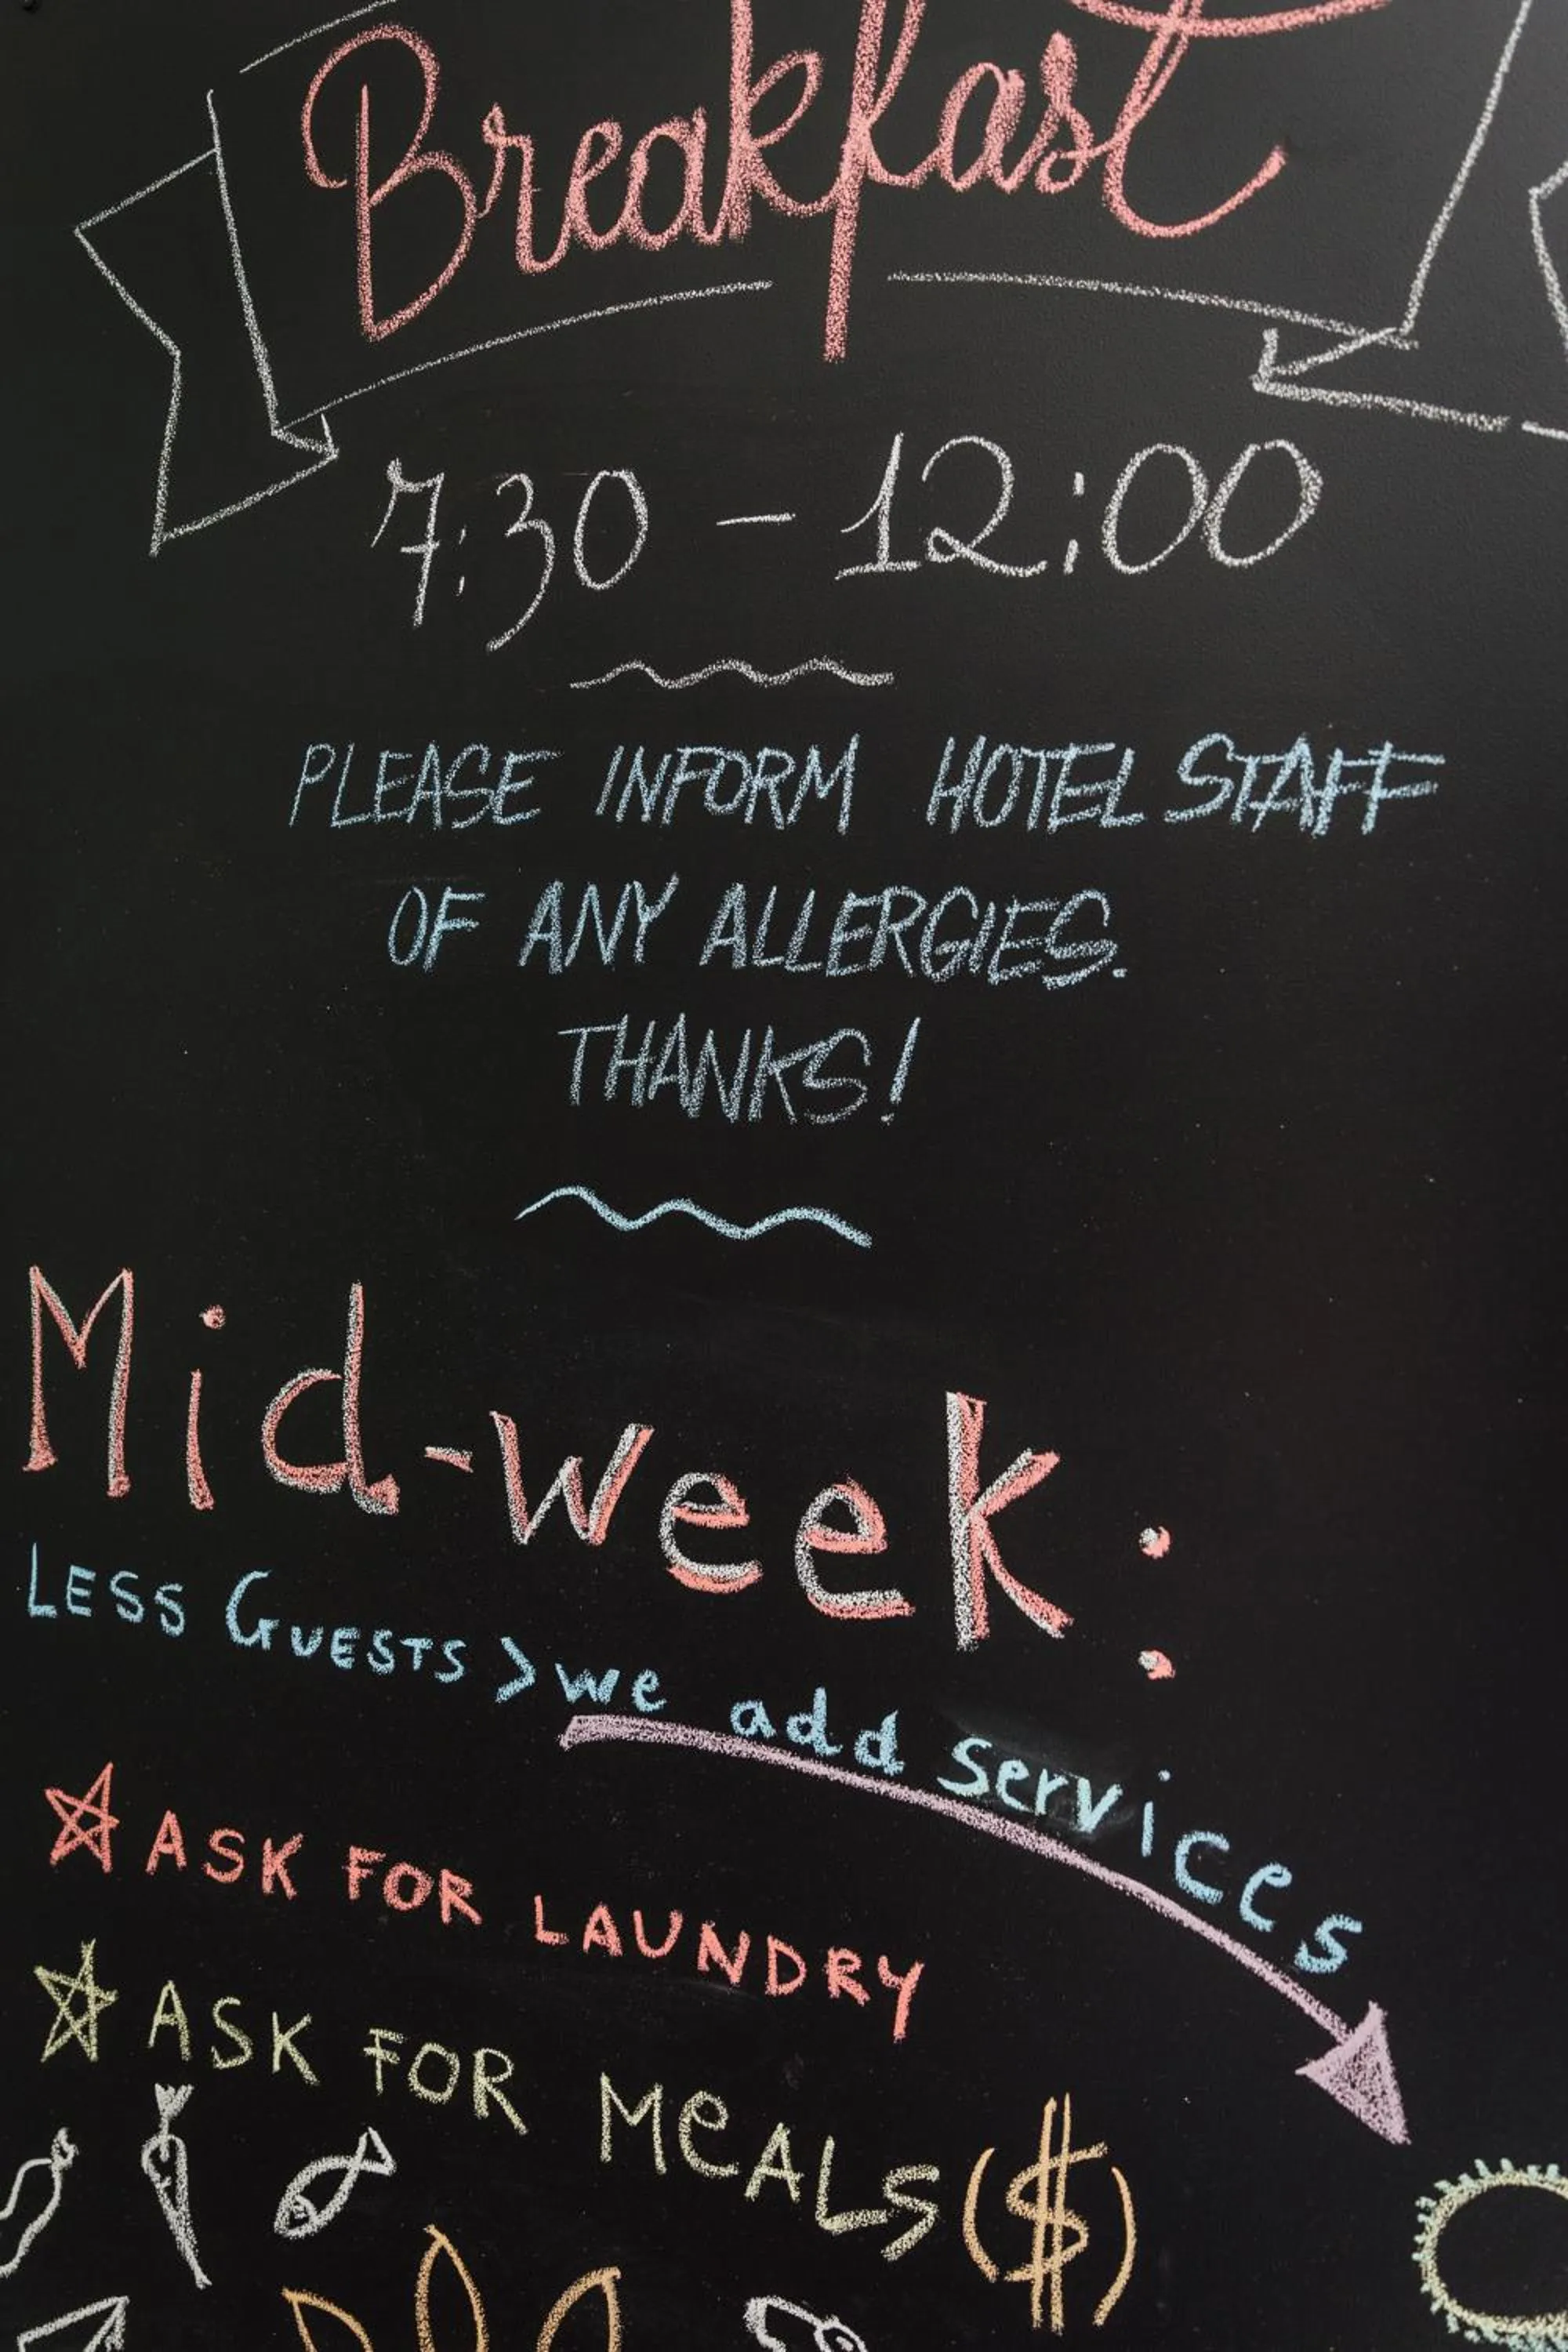 Breakfast
7:30 - 12:00
PLEASE INFORM HOTEL STAFF
OF ANY ALLERGIES.
THANKS!
Mid-week:
LESS GUESTS > we add services
ASK FOR LAUNDRY
ASK FOR MeALS ($)